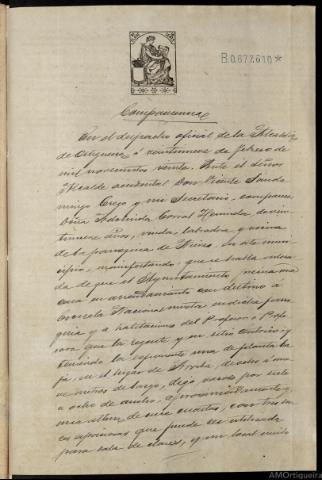 B.0.677.610*
Comparecencia
En el despacho oficial de la Alcaldía
de Ortigueira á veintinueve de febrero de
mil novecientos veinte. Ante el señor
Alcalde accidental Don Vicente Sando-
mingo Crego y mi Secretario, comparece
Doña Adosinda Corral
años, viuda, labradora y vecina
de la parroquia de en este muni-
cipio, manifestando: que se halla entera-
da de que el Ayuntamiento precisa una
casa en arrendamiento con destino á
Escuela Nacional mixta en dicha parro-
quia y á habitaciones del Profesor o Profe-
sora que la regente y en sitio céntrico; y
teniendo la exponente una de planta ba-
ja, en el lugar de de ocho á nue-
ve metros de largo, digo varas por siete
a ocho de ancho, aproximadamente y
una altura de seis cuartas, con
que puede ser utilizada
para sala de clases, y un local
AMOrtigueira